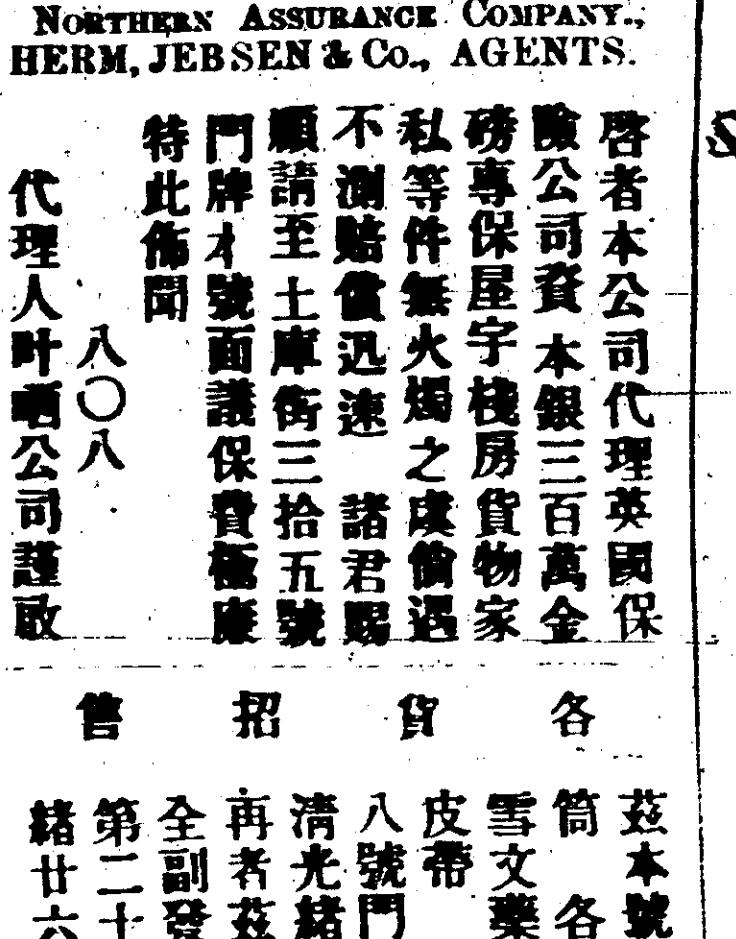 NORTHERN ASSURANCE COMPANY.,
HERM, JEBSEN & Co., AGENTS.
啓者本公司代理英國保
險公司資本銀三百萬金
磅專保屋宇棧房貨物家
私等件無火燭之虞倘遇
不測賠償迅速 諸君賜
顧請至土庫街三拾五號
門牌才號面議保費極廉
特此佈聞
八〇八
代理人時哂公司謹啟
各貨招售
茲本號
筒 各
雪文藥
皮帶
八號門
清光緒
再者茲
全副發
第二十
緒廿六